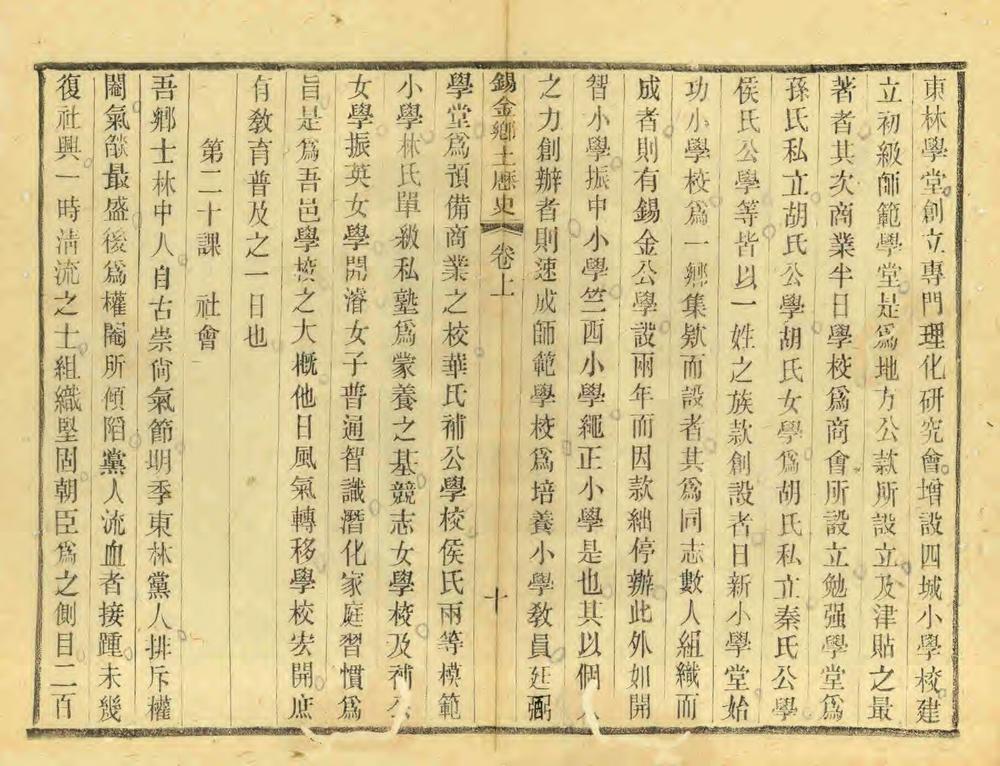 東林學堂創立專門理化研究會增設四城小學校建
立初級師範學堂是爲地方公款所設立及津貼之最
著者其次商業半日學校爲商會所設立勉强學堂爲
孫氏私立胡氏公學胡氏女學爲胡氏私立秦氏公學
侯氏公學等皆以一姓之族款創設者日新小學堂始
功小學校爲一鄉集欵而設者其爲同志數人組織而
成者則有錫金公學設兩年而因款絀停辦此外如開
智小學振中小學竺西小學繩正小學是也其以個人
之力創辦者則速成師範學校爲培養小學敎員廷弼
錫金鄉土歷史 卷上 十
學堂爲預備商業之校華氏補公學校侯氏兩等模範
小學林氏單級私塾爲蒙養之基競志女學校及補公
女學振英女學開濬女子普通智識潛化家庭習慣爲
旨是爲吾邑學校之大槪他日風氣轉移學校宏開庶
有敎育普及之一日也
第二十課 社會
吾鄉士林中人自古崇尙氣節明季東林黨人排斥權
閹氣燄最盛後爲權閹所傾陷黨人流血者接踵未幾
復社興一時淸流之士組織堅固朝臣爲之側目二百